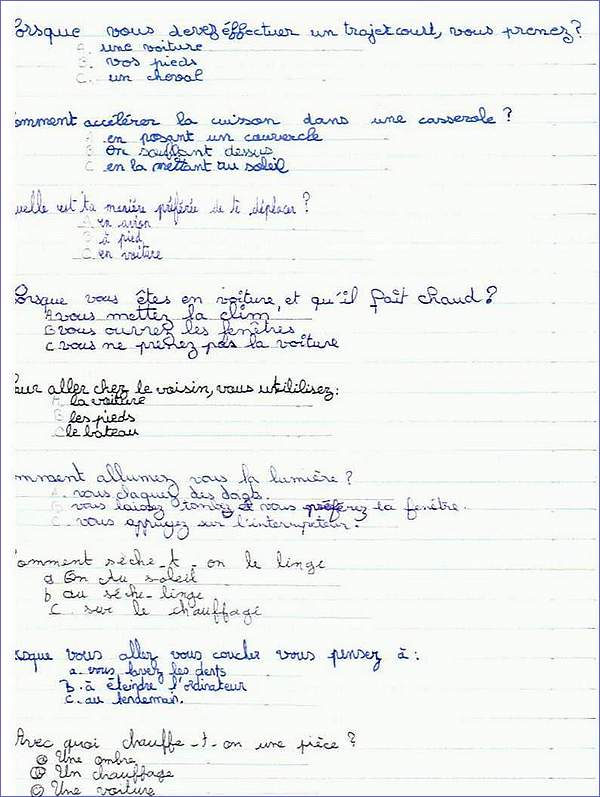 Lorsque vous devez éffectuer un trajet court, vous prenez?
A. une voiture
B. vos pieds
C. un cheval
omment accélérer la cuisson dans une casserole ?
A en posant un couvercle
B On soufflant dessus
C en la mettant au soleil
uelle est ta manière préférée de te déplacer ?
A en avion
B à pied
C. en voiture
Lorsque vous êtes en voiture, et qu'il fait chaud ?
A vous mettez la clim
B vous ouvrez les fenêtres
C vous ne prenez pas la voiture
our aller chez le voisin, vous utililisez:
A la voiture
B les pieds
C le bateau
omment allumez vous la lumière ?
A. vous claquez des doigts.
B vous laissez et vous préférez la fenêtre.
C. vous appuyez sur l'interrupteur.
omment sèche-t-on le linge
a On du soleil
b au sèche-linge
C. sur le chauffage
rsque vous allez vous coucher vous pensez à :
a. vous lavez les dents
B. à éteindre l'ordinateur
C. au lendemain.
Avec quoi chauffe-t-on une pièce ?
a Une ombre
b Un chauffage
c Une voiture